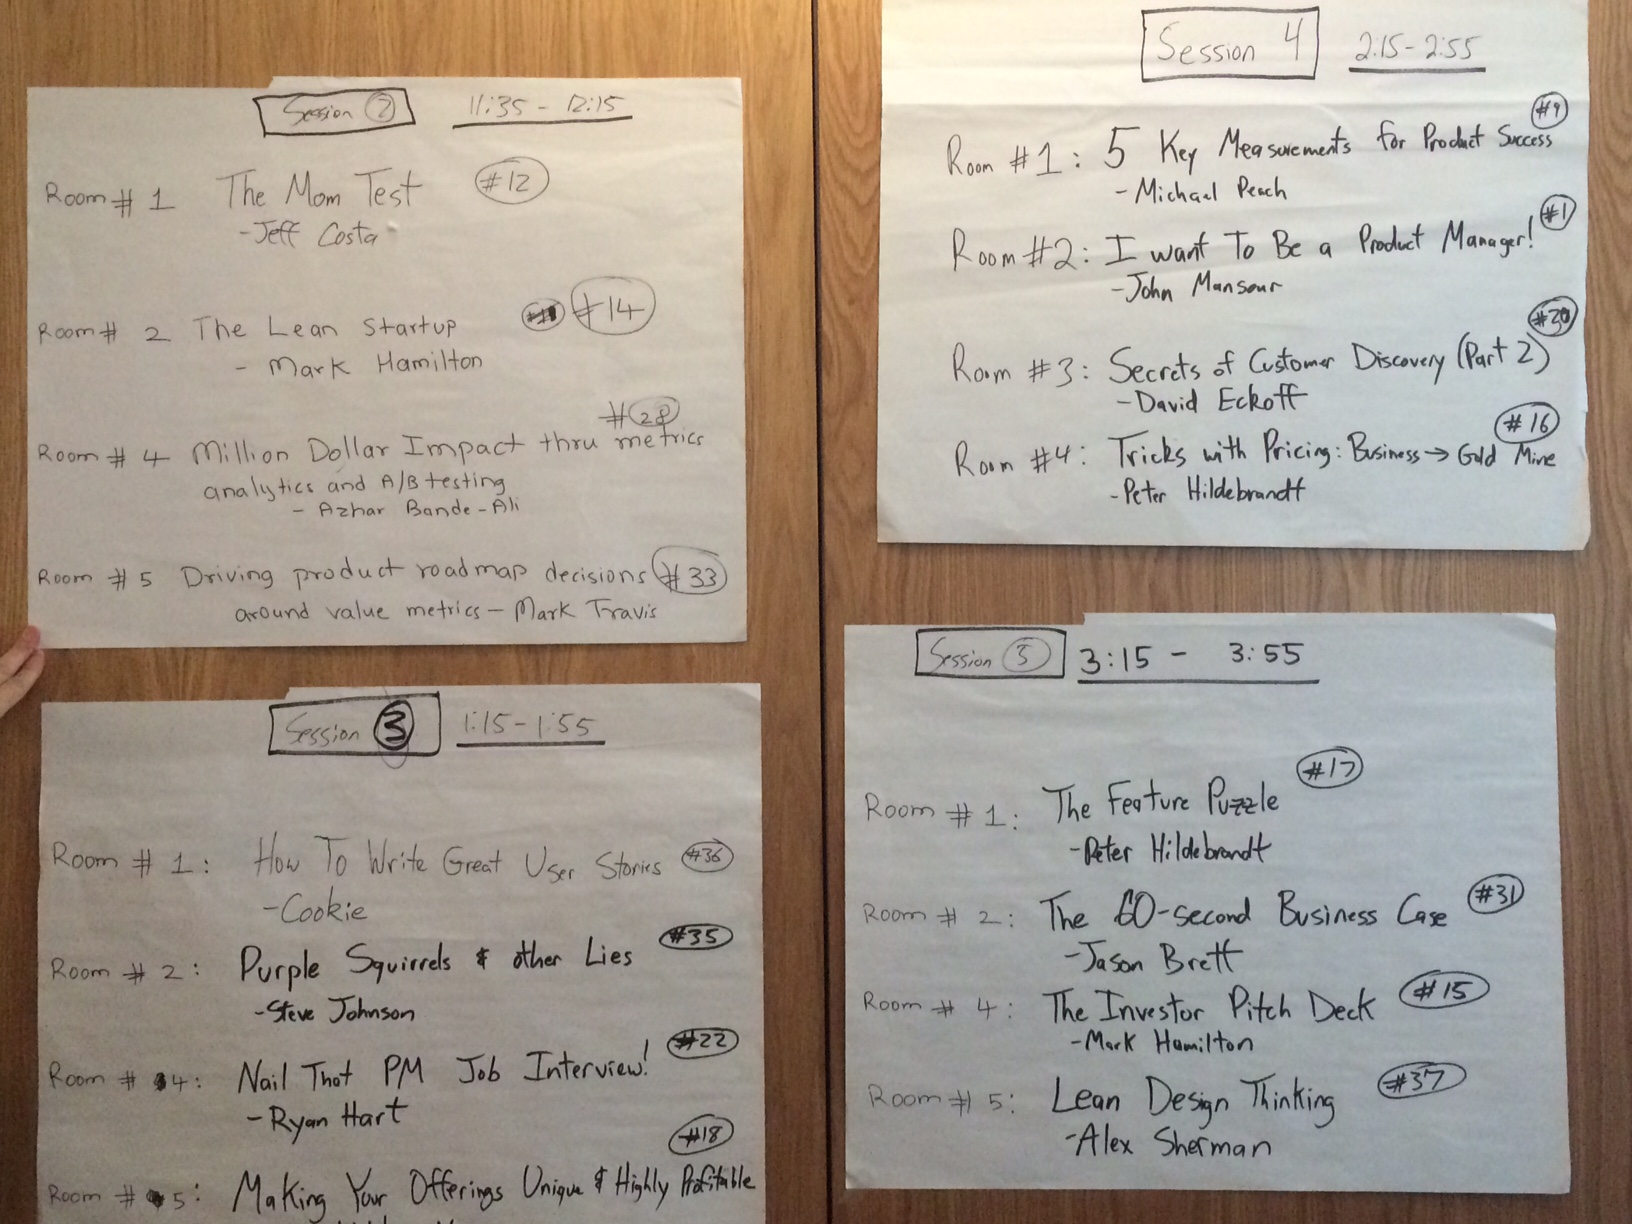 Session 2 11:35 - 12:15
Room # 1 The Mom Test #12
- Jeff Costa
Room # 2 The Lean Startup #14
- Mark Hamilton
#28
Room # 4 Million Dollar Impact thru metrics
analytics and A/B testing
- Azhar Bande-Ali
Room # 5 Driving product roadmap decisions #33
around value metrics - Mark Travis
Session 3 1:15 - 1:55
Room # 1: How To Write Great User Stories #36
- Cookie
Room # 2: Purple Squirrels & other Lies #35
- Steve Johnson
Room # 4: Nail That PM Job Interview! #22
- Ryan Hart
#18
Room # 5: Making Your Offerings Unique & Highly Profitable
Session 4 2:15 - 2:55
#9
Room #1: 5 Key Measurements for Product Success
- Michael Peach
Room #2: I want To Be a Product Manager! #1
- John Mansour
Room #3: Secrets of Customer Discovery (Part 2)
- David Eckoff
#16
Room #4: Tricks with Pricing: Business → Gold Mine
- Peter Hildebrandt
Session 5 3:15 - 3:55
Room # 1: The Feature Puzzle #17
- Peter Hildebrandt
Room # 2: The 60-second Business Case #31
- Jason Brett
Room # 4: The Investor Pitch Deck #15
- Mark Hamilton
Room # 5: Lean Design Thinking #37
- Alex Sherman